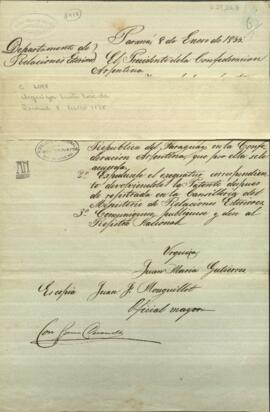 Paraná 8 de Enero de 1855.
Departamento de
Relaciones Exterior
El Presidente de la Confederacion
Argentina
República del Paraguay en la Confe
deracion Argentina, que por ella se le
acuerda.
2º Expidase el exequatur
devolviendole la Patente despues
de registrada en la Cancilleria del
Ministerio de Relaciones Exteriores
3º Comuniquese, publiquese y dese al
Registro Nacional.
Urquiza
Juan Maria Gutierrez
Es copia Juan J. Monguillot
Oficial mayor